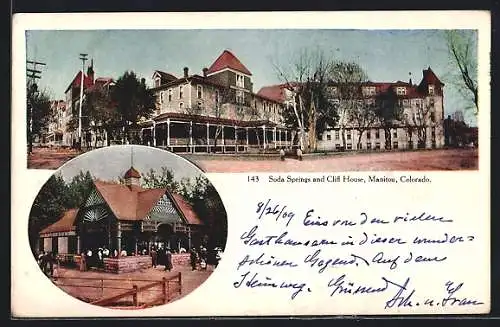 143 Soda Springs and Cliff House, Manitou, Colorado.
8/26/09 Eins von den vielen
Gasthäusern in dieser wunder=
schönen Gegend. Auf dem
Heimweg, Grüssend
Sch. u. Frau